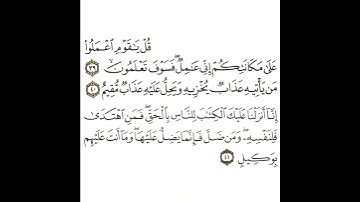 قُلْ يَٰقَوْمِ ٱعْمَلُوا۟
عَلَىٰ مَكَانَتِكُمْ إِنِّى عَٰمِلٌ ۖ فَسَوْفَ تَعْلَمُونَ ٣٩
مَن يَأْتِيهِ عَذَابٌ يُخْزِيهِ وَيَحِلُّ عَلَيْهِ عَذَابٌ مُّقِيمٌ ٤٠
إِنَّآ أَنزَلْنَا عَلَيْكَ ٱلْكِتَٰبَ لِلنَّاسِ بِٱلْحَقِّ ۖ فَمَنِ ٱهْتَدَىٰ
فَلِنَفْسِهِۦ ۖ وَمَن ضَلَّ فَإِنَّمَا يَضِلُّ عَلَيْهَا ۖ وَمَآ أَنتَ عَلَيْهِم
بِوَكِيلٍ ٤١